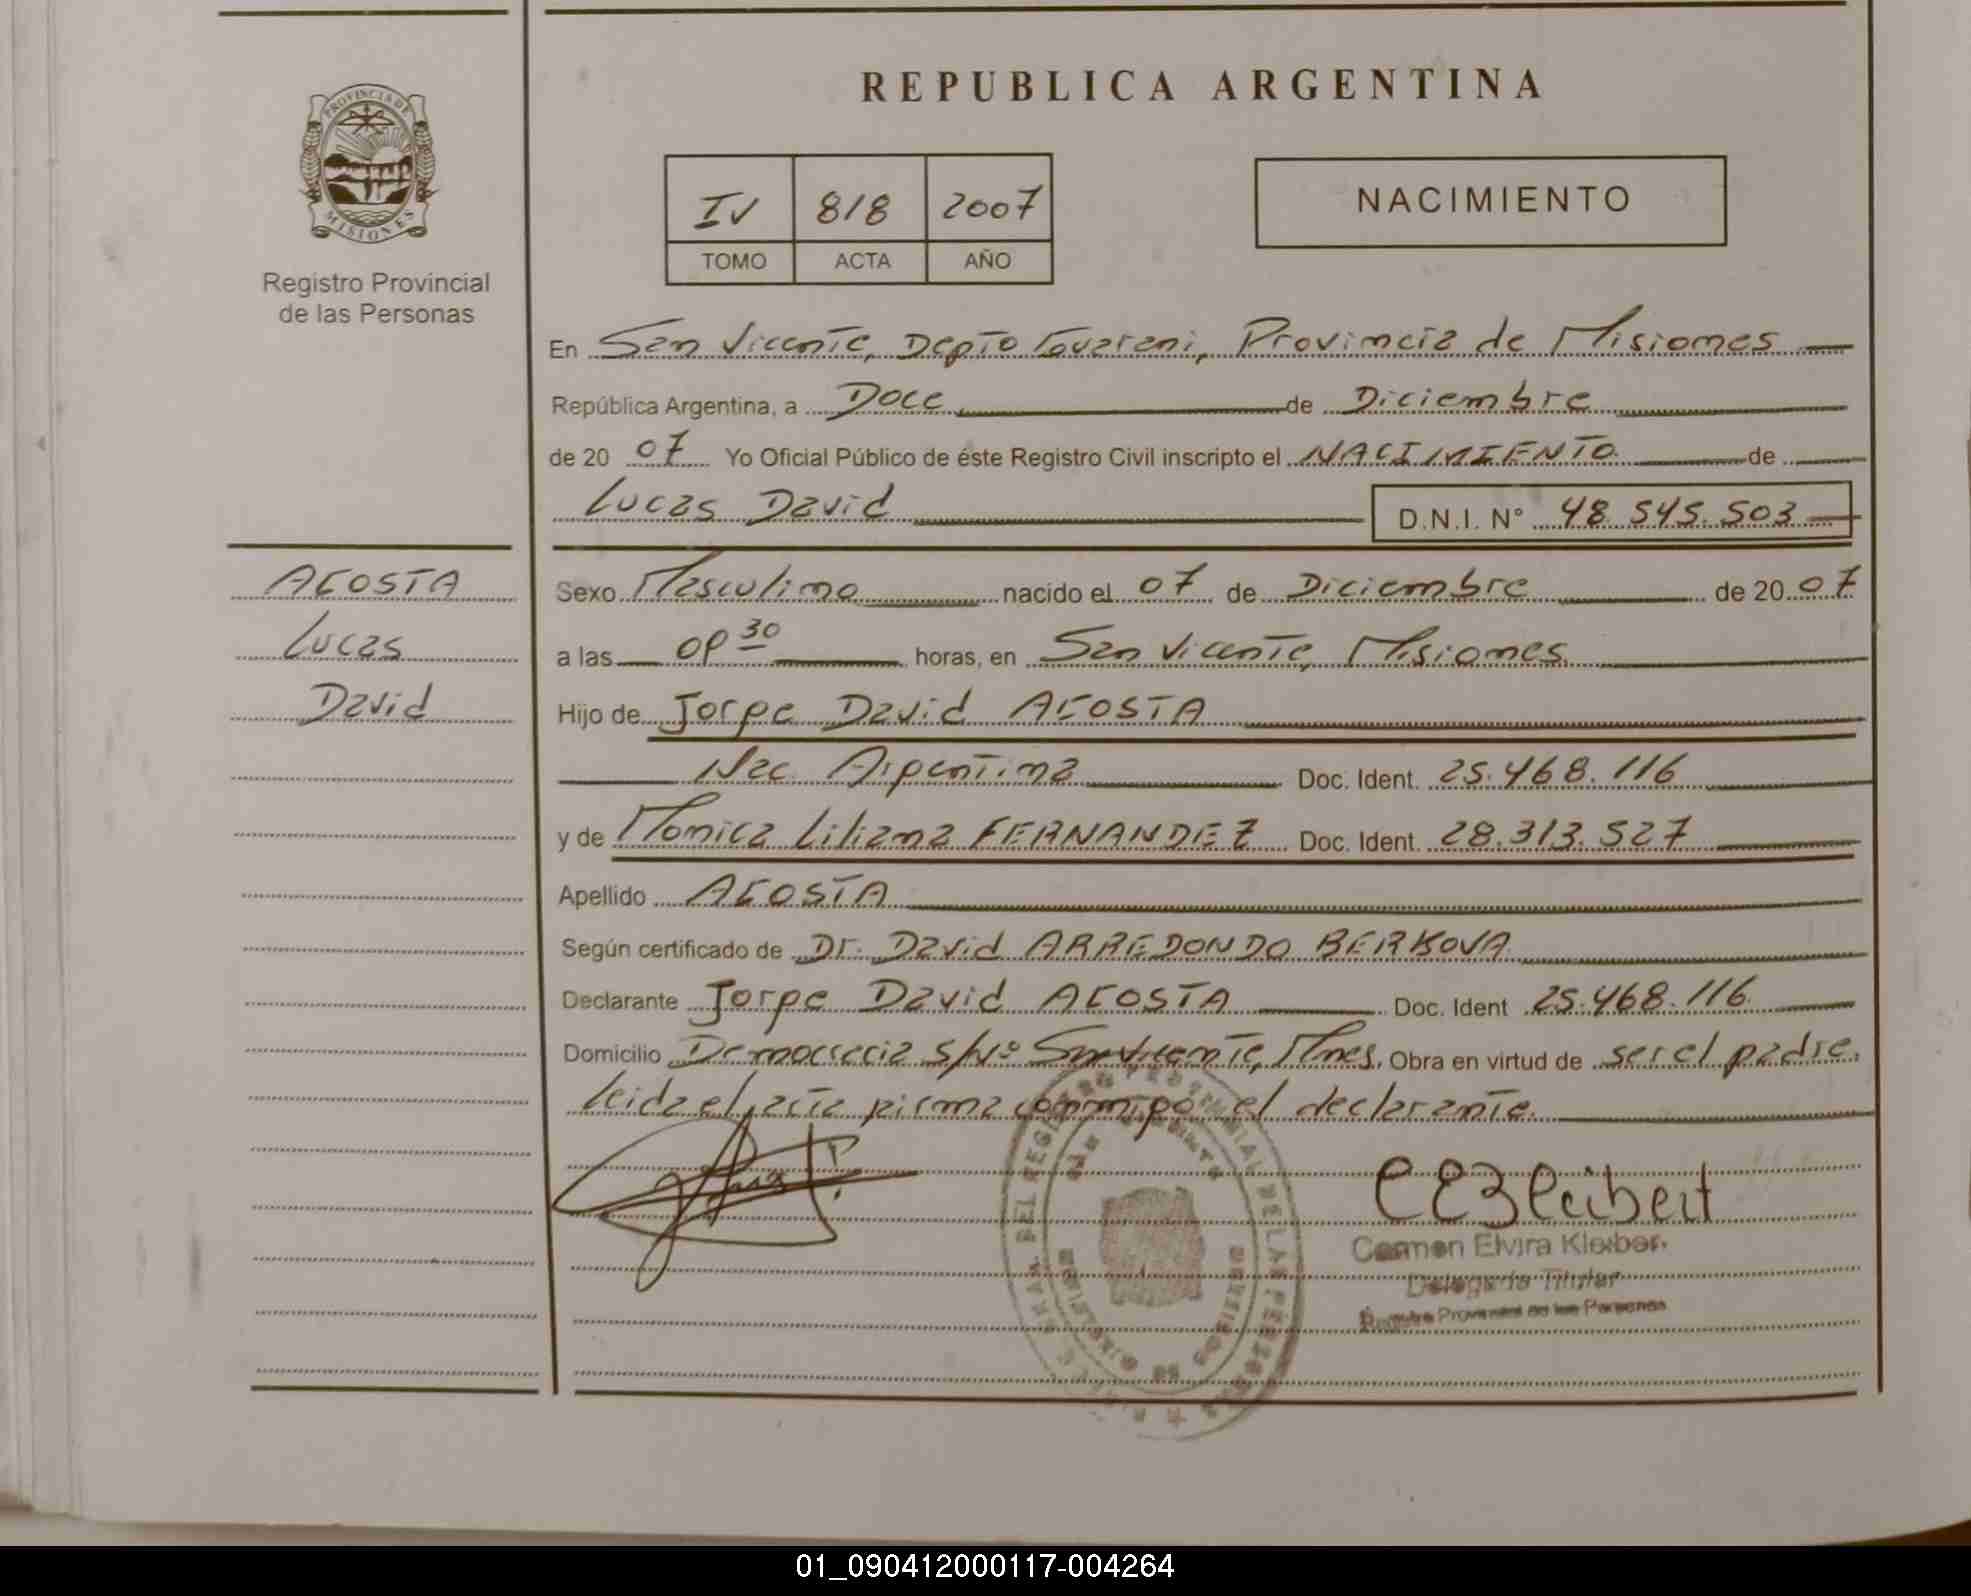 REPUBLICA ARGENTINA
PROVINCIA DE
MISIONES
Registro Provincial
de las Personas
IV 818 2007
TOMO ACTA AÑO
NACIMIENTO
En San Vicente, Depto Guarani, Provincia de Misiones
República Argentina, a Doce de Diciembre
de 20 07 Yo Oficial Público de éste Registro Civil inscripto el NACIMIENTO de
Lucas David D.N.I. N° 48.545.503
ACOSTA
Lucas
David
Sexo Masculino nacido el 07 de Diciembre de 20 07
a las 30 horas, en San Vicente, Misiones
Hijo de Jorge David ACOSTA
Nac Argentina Doc. Ident. 25.468.116
y de Monica Liliana FERNANDEZ Doc. Ident. 28.313.527
Apellido ACOSTA
Según certificado de Dr. David ARREDONDO BERKOVA
Declarante Jorge David ACOSTA Doc. Ident 25.468.116
Domicilio Democracia S/Nº San Vicente, Mnes. Obra en virtud de ser el padre.
Leida el acta firma conmigo el declarante.
Carmen Elvira Kleiber
Delegada Titular
Registro Provincial de las Personas
01_090412000117-004264